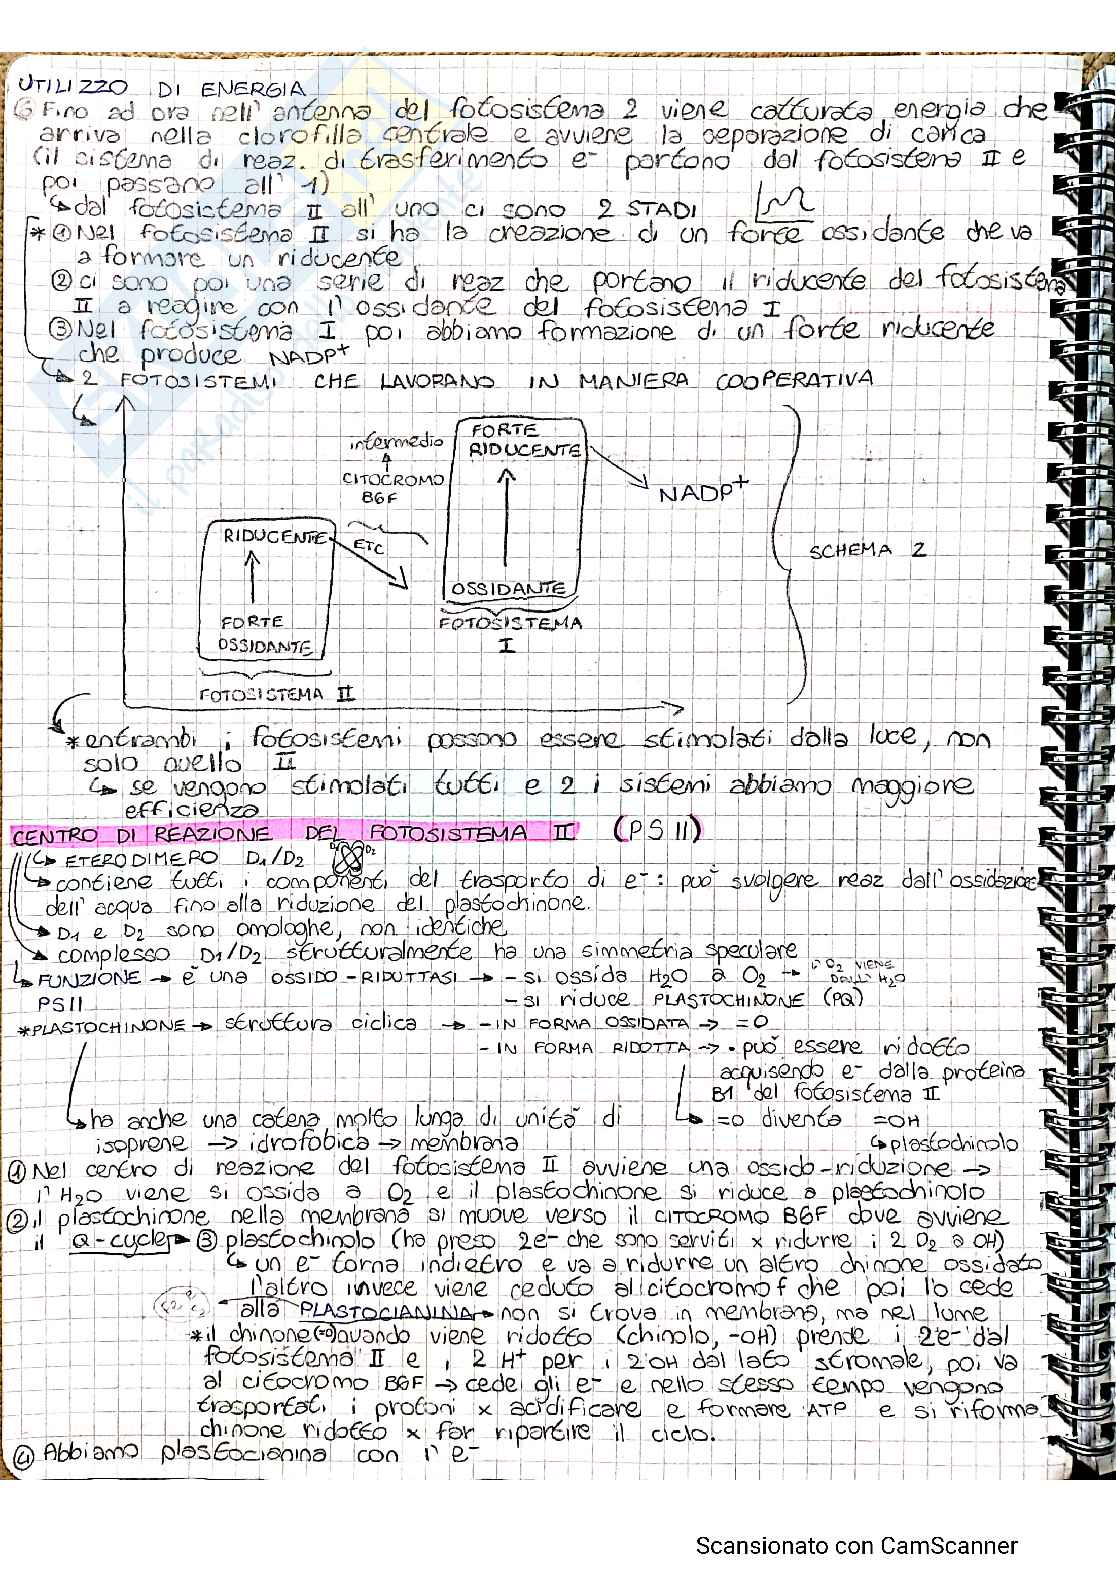 UTILIZZO DI ENERGIA
Fino ad ora nell'antenna del fotosistema 2 viene catturata energia che
arriva nella clorofilla centrale e avviene la separazione di carica
(il sistema di reaz. di trasferimento e- partono dal fotosistema II e
poi passano all'1)
↳ dal fotosistema II all'uno ci sono 2 STADI
* ① Nel fotosistema II si ha la creazione di un forte ossidante che va
a formare un riducente
② ci sono poi una serie di reaz che portano il riducente del fotosistema
II a reagire con l'ossidante del fotosistema I
③ Nel fotosistema I poi abbiamo formazione di un forte riducente
che produce NADP+
↳ 2 FOTOSISTEMI CHE LAVORANO IN MANIERA COOPERATIVA
FORTE
RIDUCENTE
intermedio
CITOCROMO
B6F
NADP+
RIDUCENTE
ETC
SCHEMA Z
OSSIDANTE
FORTE
OSSIDANTE
FOTOSISTEMA
I
FOTOSISTEMA II
* entrambi i fotosistemi possono essere stimolati dalla luce, non
solo quello II
↳ se vengono stimolati tutti e 2 i sistemi abbiamo maggiore
efficienza
CENTRO DI REAZIONE DEL FOTOSISTEMA II (PSII)
↳ ETERODIMERO D1/D2 D1 D2
↳ contiene tutti i componenti del trasporto di e-: può svolgere reaz dall'ossidazione
dell'acqua fino alla riduzione del plastochinone.
↳ D1 e D2 sono omologhe, non identiche
↳ complesso D1/D2 strutturalmente ha una simmetria speculare
↳ FUNZIONE → è una OSSIDO-RIDUTTASI → - si ossida H2O a O2 → l'O2 VIENE DALL'H2O
PSII - si riduce PLASTOCHINONE (PQ)
* PLASTOCHINONE → struttura ciclica → - IN FORMA OSSIDATA → =O
- IN FORMA RIDOTTA → • può essere ridotto
acquisendo e- dalla proteina
B1 del fotosistema II
↳ ha anche una catena molto lunga di unità di ↳ =O diventa =OH
isoprene → idrofobica → membrana ↳ plastochinolo
① Nel centro di reazione del fotosistema II avviene una ossido-riduzione →
l'H2O viene si ossida a O2 e il plastochinone si riduce a plastochinolo
② il plastochinone nella membrana si muove verso il CITOCROMO B6F dove avviene
il Q-cycle → ③ plastochinolo (ha preso 2e- che sono serviti x ridurre i 2 O2 a OH)
↳ un e- torna indietro e va a ridurre un altro chinone ossidato
l'altro invece viene ceduto al citocromo f che poi lo cede
alla PLASTOCIANINA → non si trova in membrana, ma nel lume
* il chinone (=O) quando viene ridotto (chinolo, -OH) prende i 2e- dal
fotosistema II e i 2 H+ per i 2 OH dal lato stromale, poi va
al citocromo B6F → cede gli e- e nello stesso tempo vengono
trasportati i protoni x acidificare e formare ATP e si riforma
chinone ridotto x far ripartire il ciclo.
④ Abbiamo plastocianina con l'e-
Scansionato con CamScanner